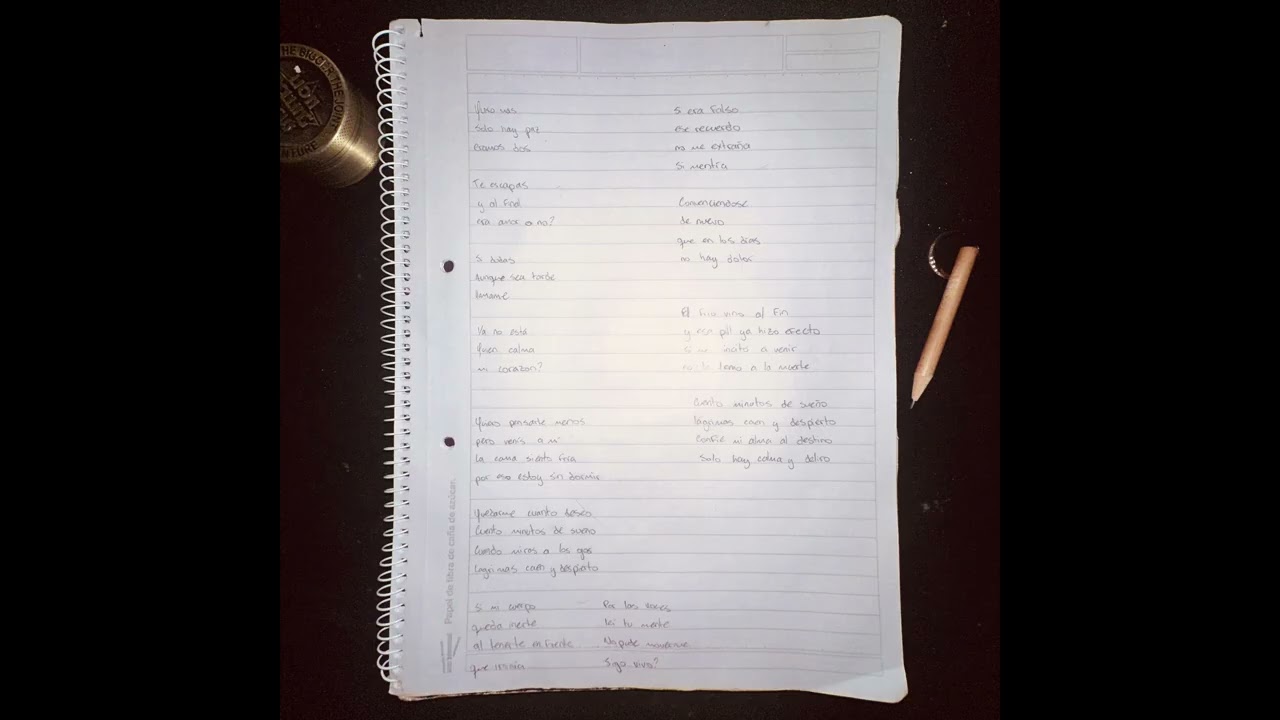 solo hay paz
éramos dos
Te escapas
y al final
era amor o no?
Si dudas
Aunque sea tarde
llamame
Ya no está
Quien calma
mi corazon?
Quiero pensarte menos
pero venis a mi
La cama siento fria
por eso estoy sin dormir
Quedarme cuanto deseo
Cuento minutos de sueño
Cuando miras a los ojos
Lagrimas caen y despierto
Si mi cuerpo
queda inerte
al tenerte en frente
que ironia
Por las voces
Lei tu mente
No pude moverme
Sigo vivo?
Si era falso
ese recuerdo
no me extraña
Si mentía
Convenciendose
de nuevo
que en los dias
no hay dolor
El frio vino al fin
y esa pill ya hizo efecto
si me incito a venir
no le temo a la muerte
Cuento minutos de sueño
lágrimas caen y despierto
Confie mi alma al destino
Solo hay calma y delirio
THE BIGGER THE JOINT
Papel de fibra de caña de azúcar.